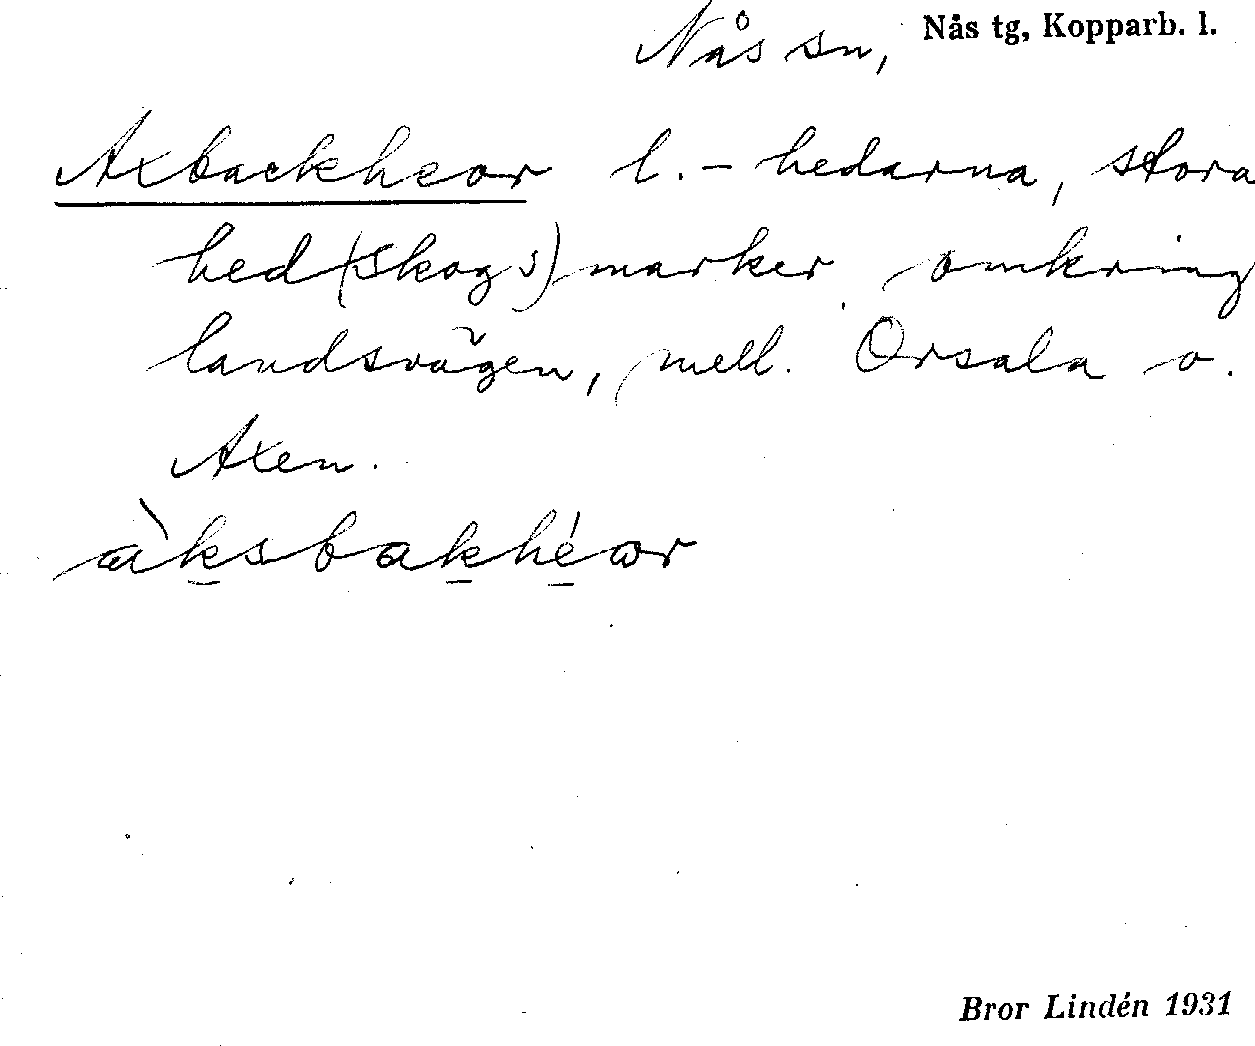 Nås sn, Nås tg, Kopparb. l.
Axbackheor l. - hedarna, stora
hed(skogs)marker omkring
landsvägen, mell. Orsala o.
Axen.
àksbakhéor
Bror Lindén 1931